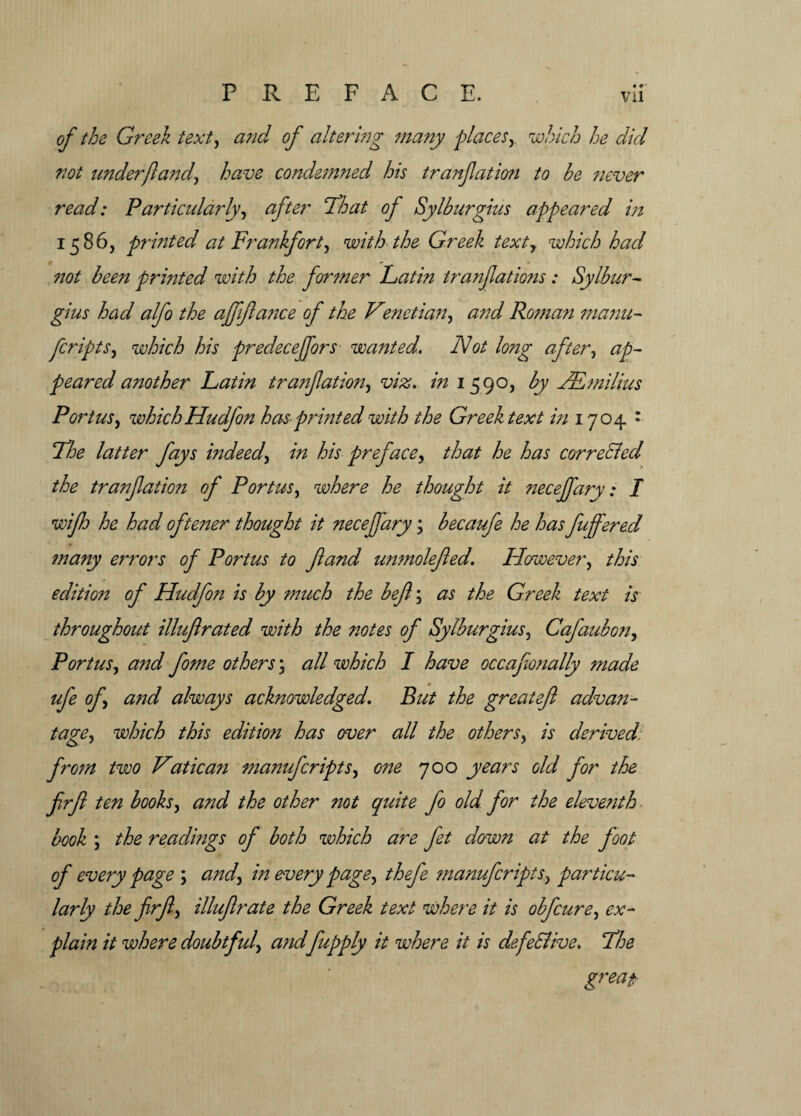 PREFACE. vii
of the Greek text, and of altering many places, which he did
not underſtand, have condemned his tranſlation to be never
read: Particularly, after That of Sylburgius appeared in
1586, printed at Frankfort, with the Greek text, which had
not been printed with the former Latin tranſlations: Sylbur-
gius had alſo the aſſiſtance of the Venetian, and Roman manu-
ſcripts, which his predeceſſors wanted. Not long after, ap-
peared another Latin tranſlation, viz. in 1590, by Æmilius
Portus, which Hudſon has printed with the Greek text in 1704:
The latter ſays indeed, in his preface, that he has corrected
the tranſlation of Portus, where he thought it neceſſary: I
wiſh he had oftener thought it neceſſary; becauſe he has ſuffered
many errors of Portus to ſtand unmoleſted. However, this
edition of Hudſon is by much the beſt; as the Greek text is
throughout illuſtrated with the notes of Sylburgius, Caſaubon,
Portus, and ſome others; all which I have occaſionally made
uſe of, and always acknowledged. But the greateſt advan-
tage, which this edition has over all the others, is derived
from two Vatican manuſcripts, one 700 years old for the
firſt ten books, and the other not quite ſo old for the eleventh
book; the readings of both which are ſet down at the foot
of every page; and, in every page, theſe manuſcripts, particu-
larly the firſt, illuſtrate the Greek text where it is obſcure, ex-
plain it where doubtful, and ſupply it where it is defective. The
great